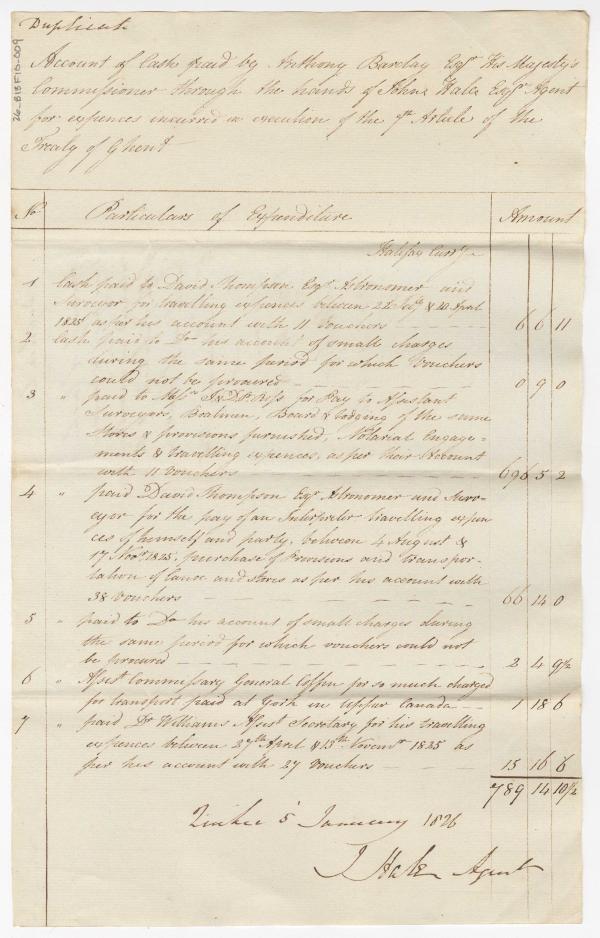 Duplicate
26-B18F10-009
Account of Cash paid by Anthony Barclay Esqr. His Majesty's
Commissioner through the hands of John Hale Esqr. Agent
for expences incurred in execution of the 7th Article of the
Treaty of Ghent
No Particulars of Expenditure Amount
Halifax Curry
1 Cash paid to David Thompson Esqr. Astronomer and
Surveyor for travelling expences between 22 & 20 April
1825 as per his account with 11 Vouchers 6 6 11
2 Cash paid to Do his account of small charges
during the same period for which Vouchers
could not be procured 0 9 0
3 " paid to Messrs for Pay to Assistant
Surveyors, Boatmen, Board & lodging of the same
Stores & provisions furnished, Notarial Engage-
ments & travelling expences, as per their Account
with 11 Vouchers 696 5 2
4 " paid David Thompson Esqr. Astronomer and Surv-
eyor for the pay of an Interpreter travelling expen
ces of himself and party, between 4 August &
17 Novr. 1825, purchase of Provisions and transpor-
tation of Canoe and stores as per his account with
38 Vouchers 66 14 0
5 " paid to Do his account of small charges during
the same period for which vouchers could not
be procured 2 4 9½
6 " Assist Commissary General Coffin for so much charged
for transport paid at York in Upper Canada 1 18 6
7 " paid, Dr Williams Assist Secretary for his travelling
expences between 27th April & 13th Novemr 1825 as
per his account with 27 Vouchers 15 16 6
789 14 10½
Quebec 5 January 1826
J Hale Agent